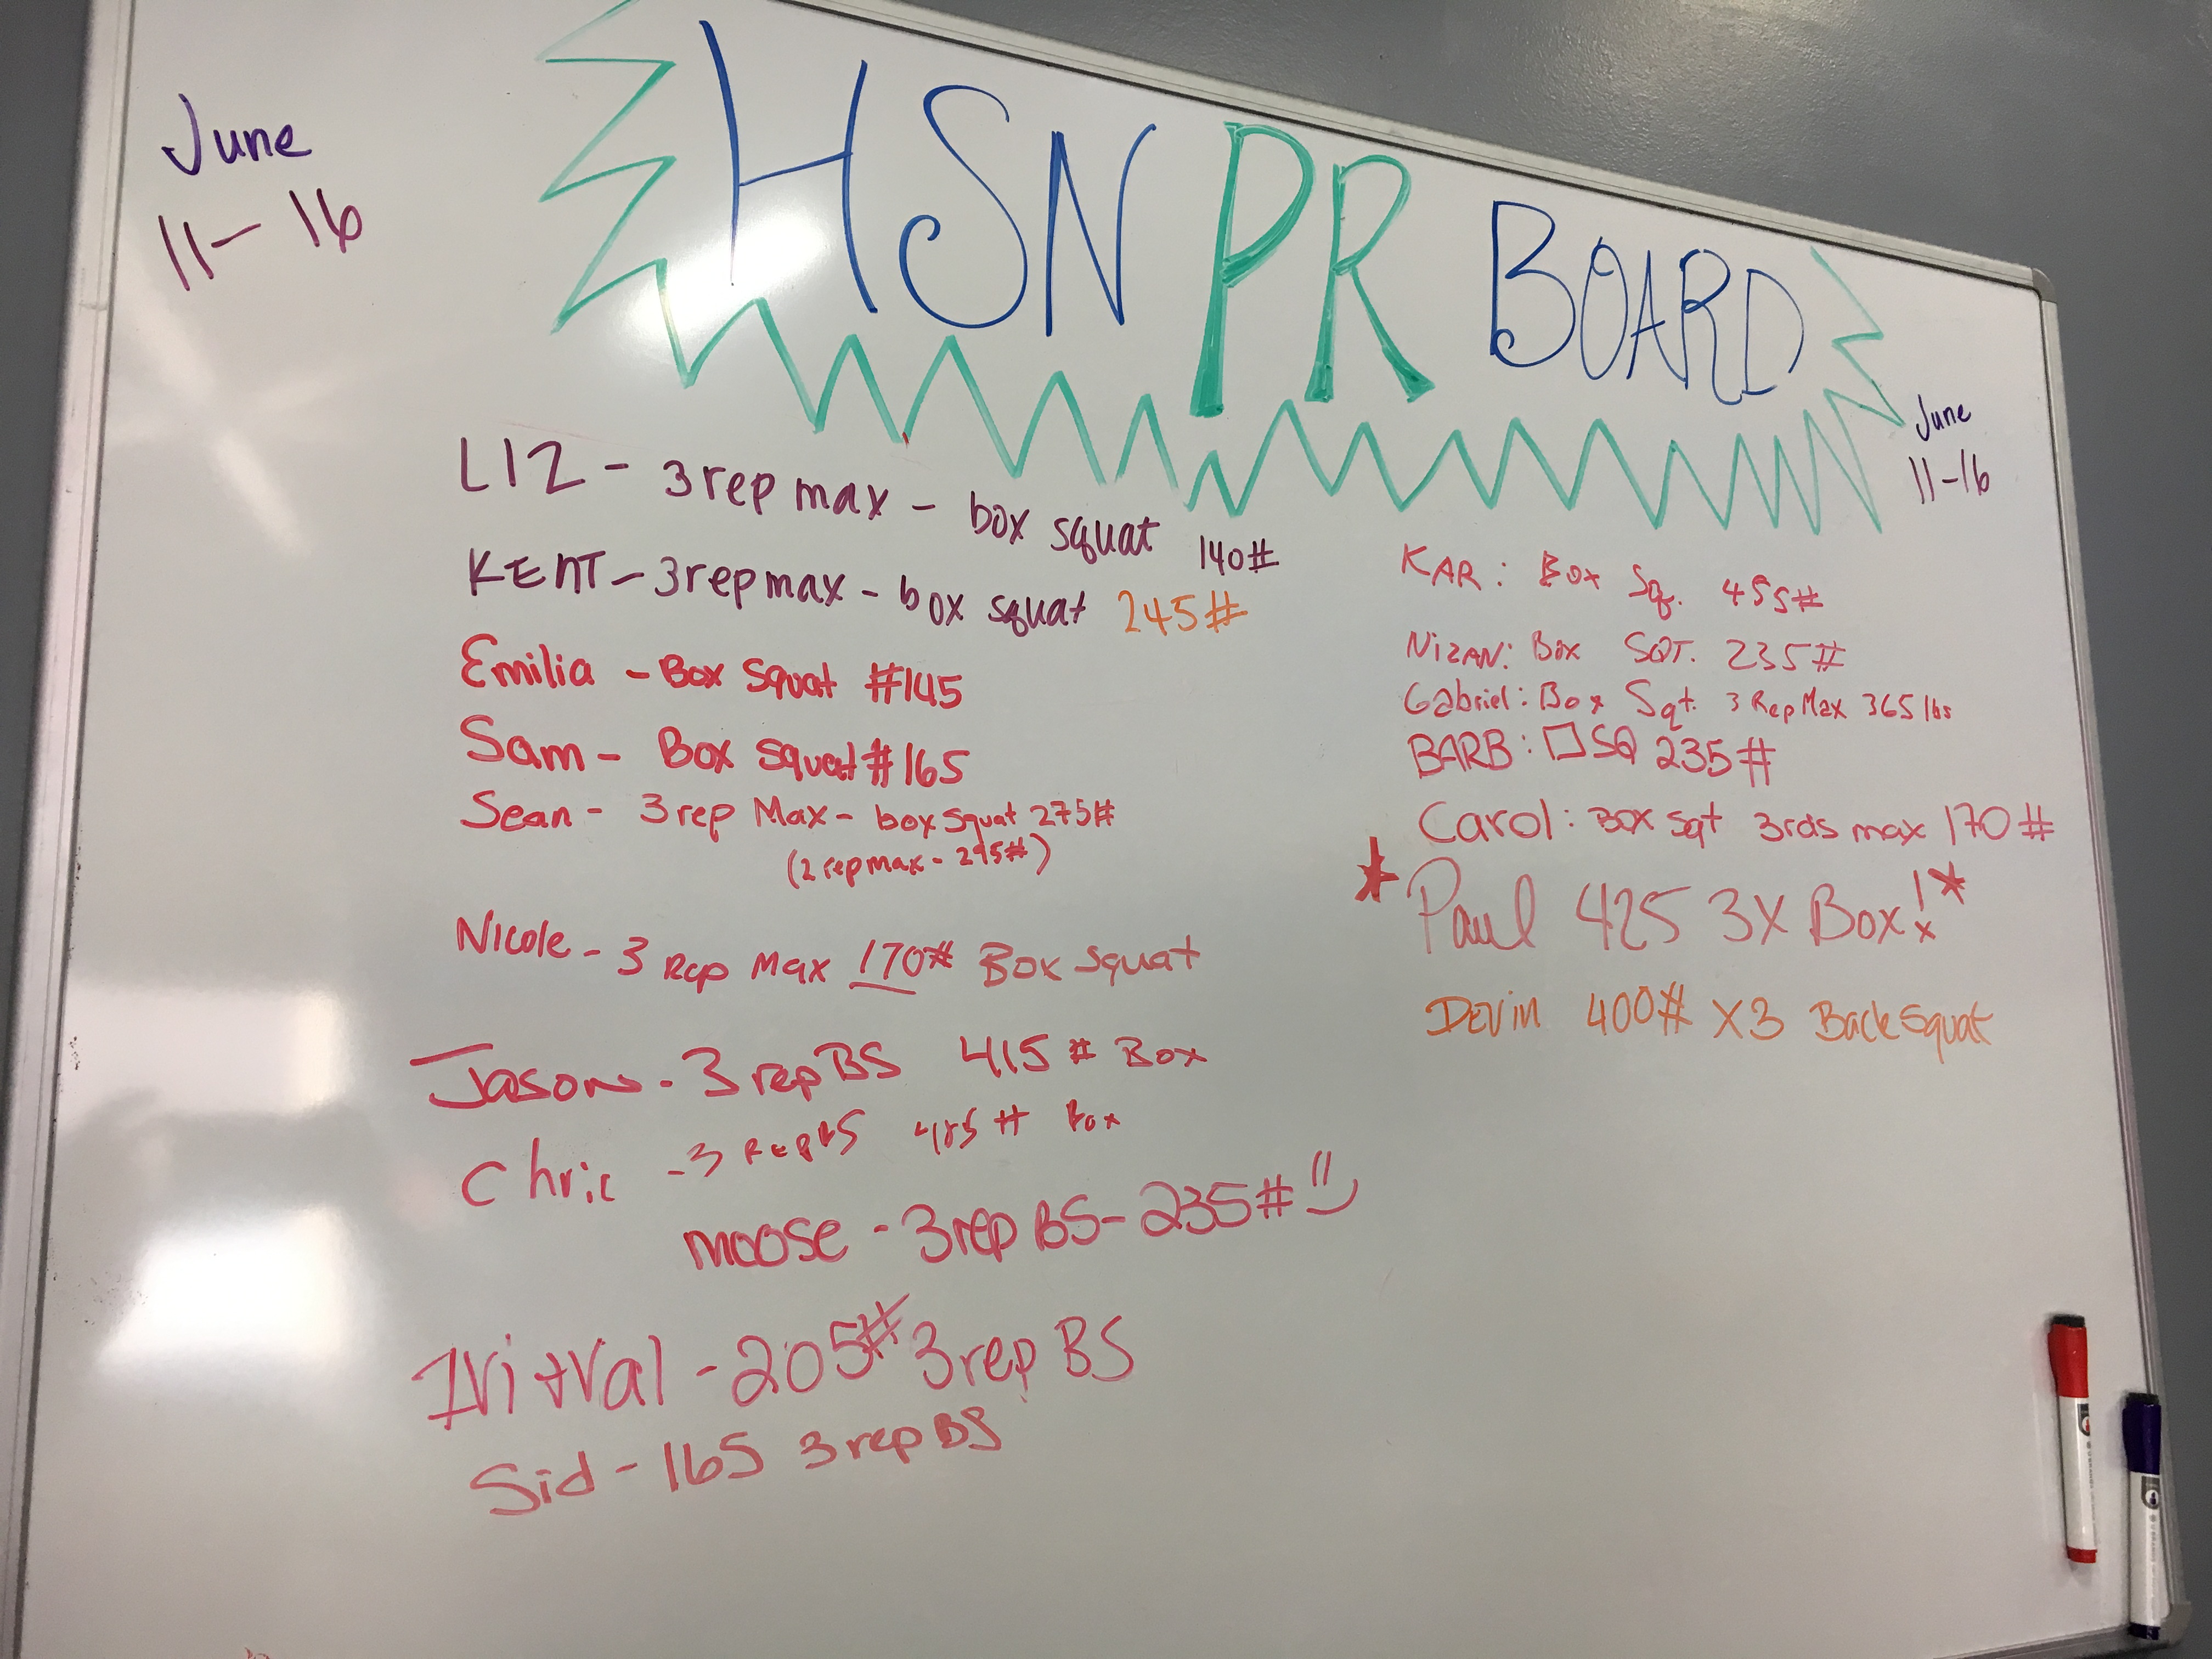 June
11-16
HSN PR BOARD
LIZ - 3 rep max - box squat 140#
KENT - 3 rep max - box squat 245#
Emilia - Box Squat #145
Sam - Box Squat #165
Sean - 3 rep Max - box squat 275#
(2 rep max - 295#)
Nicole - 3 Rep Max 170# Box Squat
Jason - 3 rep BS 415# Box
Chric - 3 Rep BS # Box
moose - 3 rep BS - 235#
- 205# 3 rep BS
Sid - 165 3 rep BS
June
11-16
KAR: Box Sq. 455#
NIZAN: Box SQT. 235#
Gabriel: Box Sqt. 3 Rep Max 365 lbs
BARB: □ SQ 235#
Carol: Box sqt 3rds max 170#
* Paul 425 3X Box! *
Devin 400# X3 Back Squat